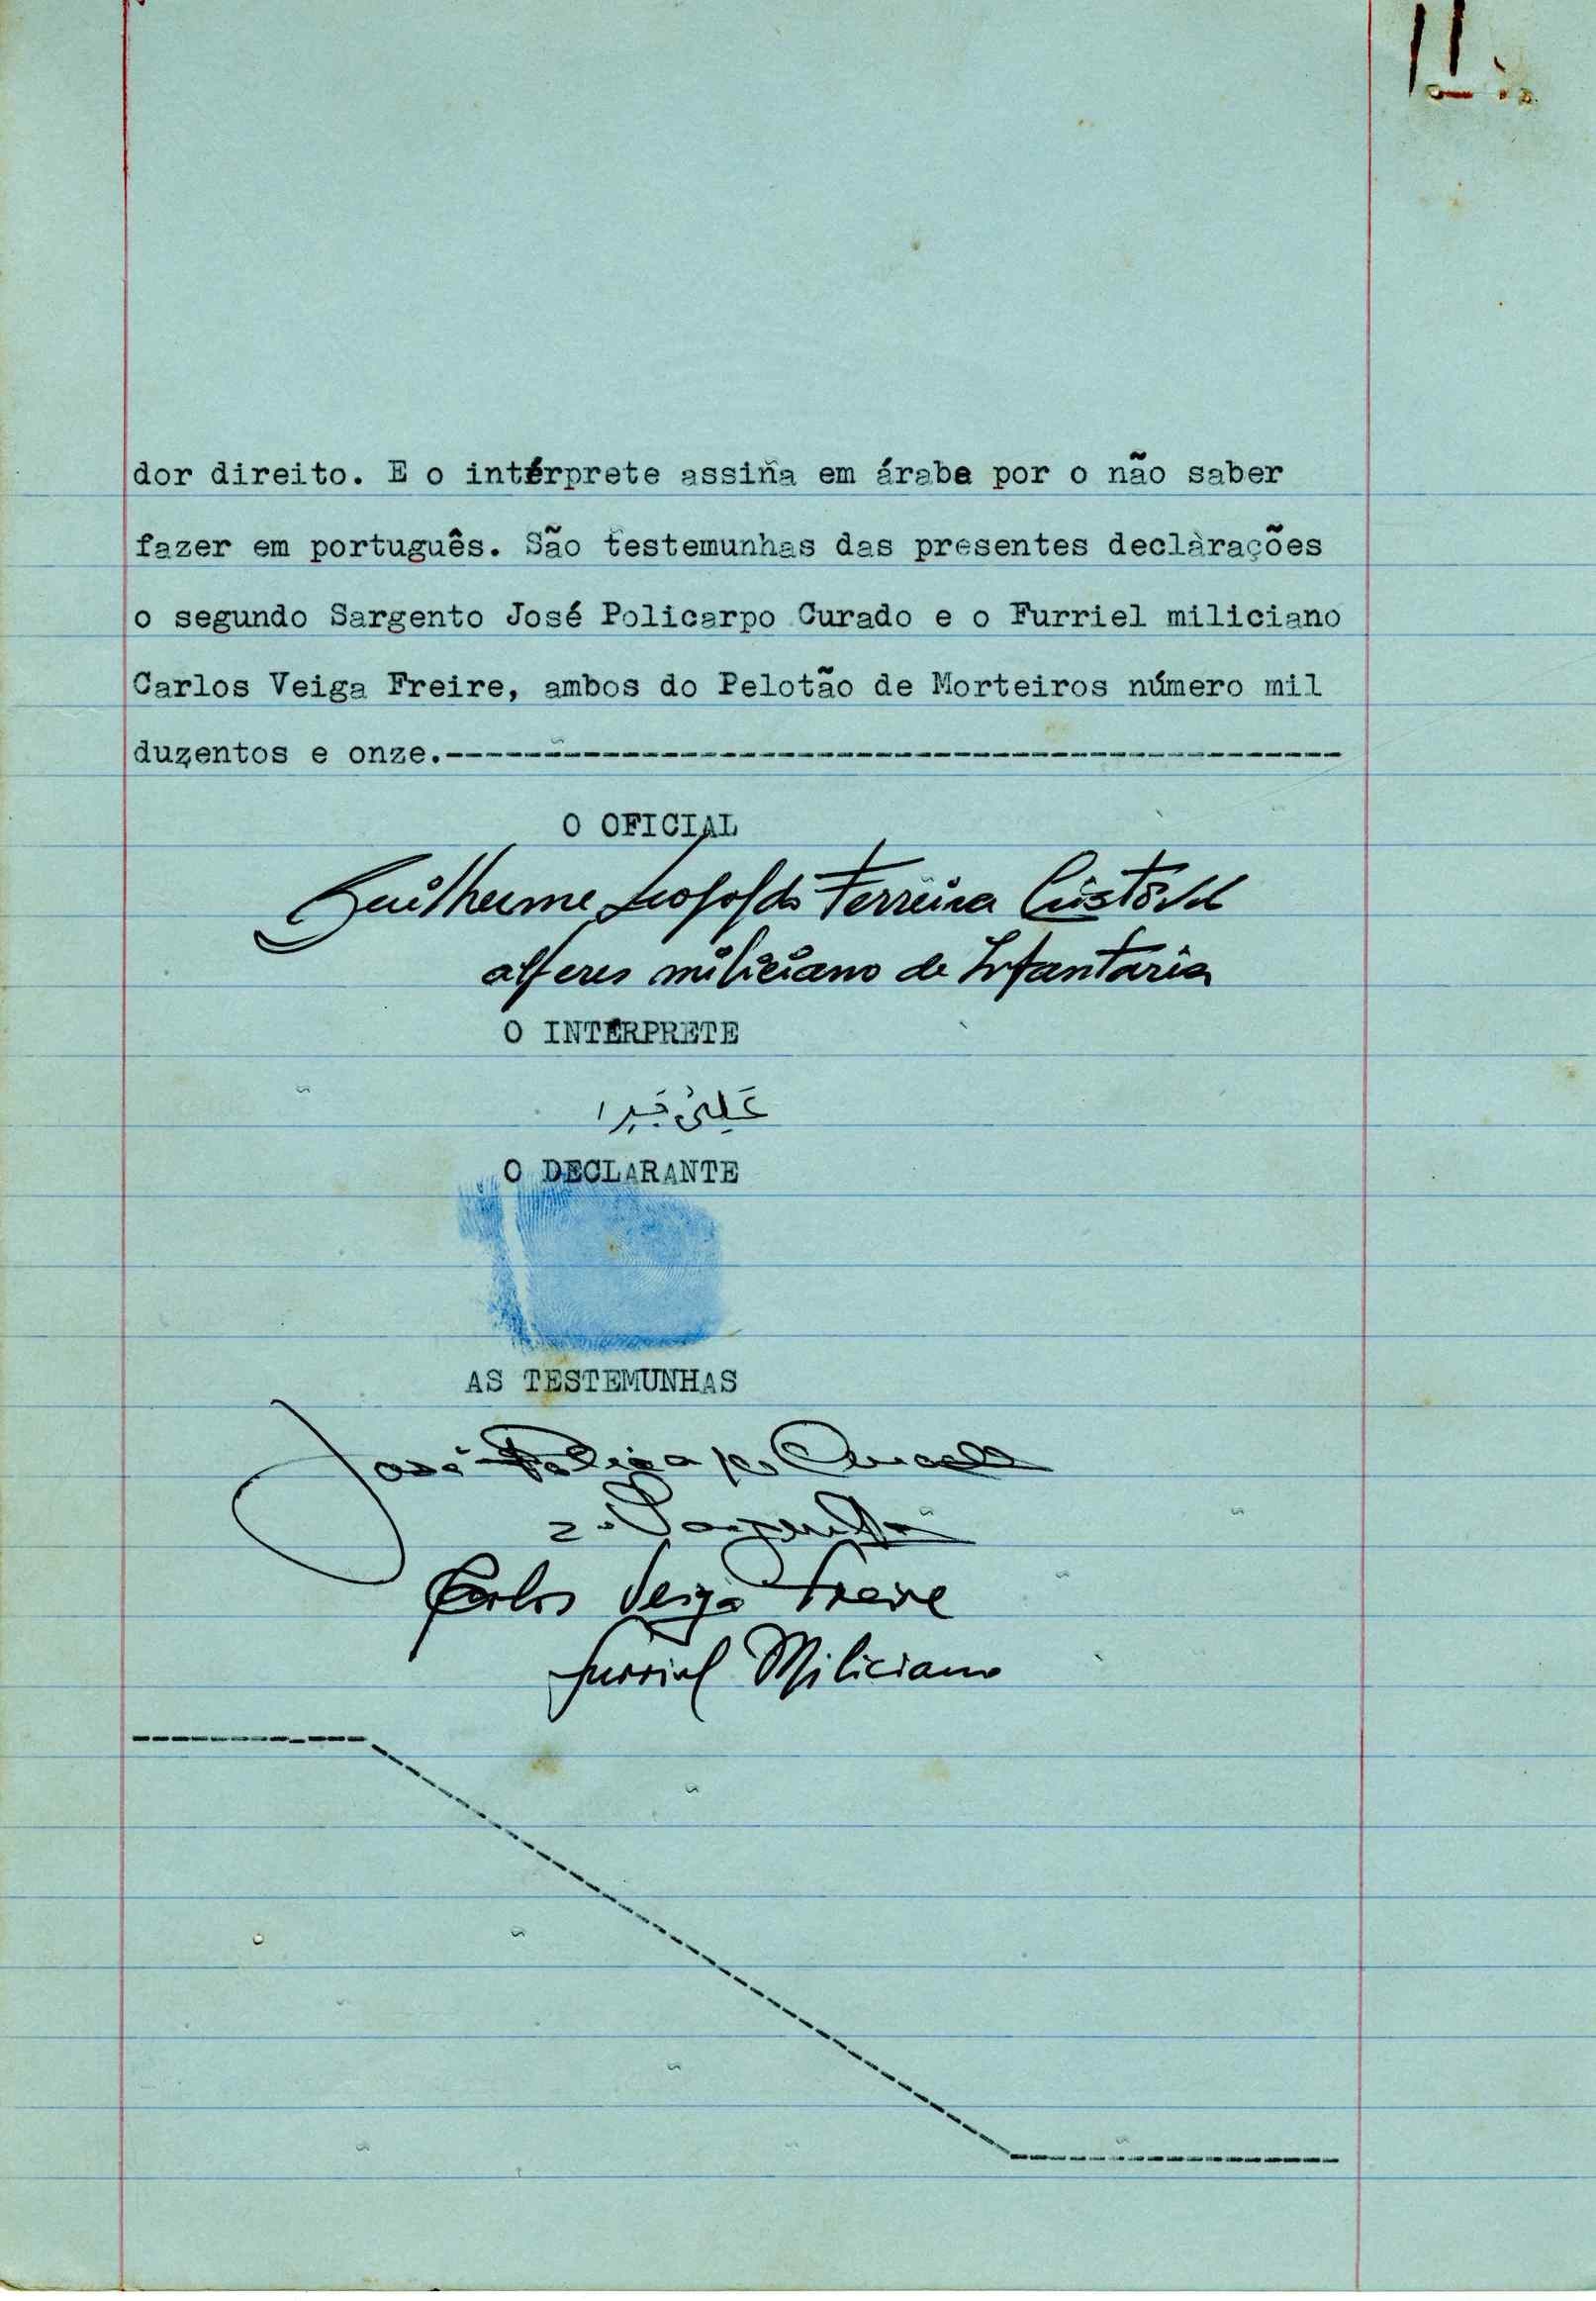 11
dor direito. E o intérprete assina em árabe por o não saber
fazer em português. São testemunhas das presentes declarações
o segundo Sargento José Policarpo Curado e o Furriel miliciano
Carlos Veiga Freire, ambos do Pelotão de Morteiros número mil
duzentos e onze.--------------------------------------------
O OFICIAL
Guilherme Leopoldo Ferreira
alferes miliciano de Infantaria
O INTÉRPRETE
O DECLARANTE
AS TESTEMUNHAS
José Policarpo Curado
2º Sargento
Carlos Veiga Freire
furriel Miliciano